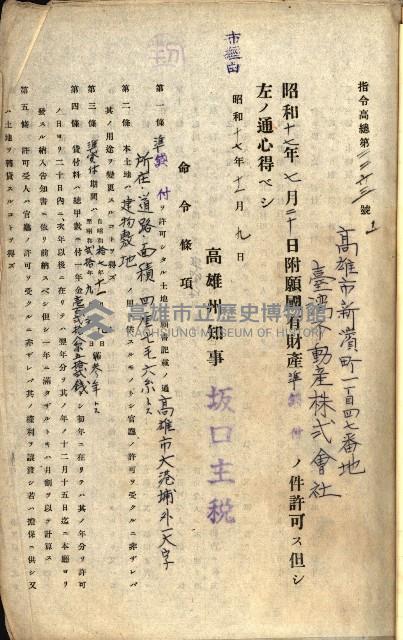 市經由
指令高總第二三六三號ノ1
高雄市新濱町一百四七番地
臺灣不動產株式會社
昭和十七年七月二十日附願國有財產準貸付ノ件許可ス但シ
左ノ通心得ベシ
昭和十七年十一月九日
高雄州知事 坂口主税
命令條項
第一條 準貸付ヲ許可シタル土地ハ願書記載ノ通高雄市大港埔外一大字
所在道路面積四厘七毛六糸トス
第二條 本土地ハ建物敷地ノ用途ニ供スルモノトシ官廳ノ許可ヲ受クルニ非ザレバ
其ノ用途ヲ變更スルコトヲ得ズ
第三條 準貸付期間ハ自昭和拾七年十一月九日至昭和貳拾年 滿參年トス
第四條 貸付料ハ總甲數ニ付一年金 トシ初年ニ在リテハ其ノ年分ヲ許可
ノ日ヨリ二十日內ニ、次年以後ニ在リテハ翌年分ヲ其ノ年ノ十二月十五日迄ニ本廳ヨリ
發スル納入告知書ニ依リ前納スベシ但シ一年ニ滿タザルトキハ月割ヲ以テ計算ス
第五條 許可受人ハ官廳ノ許可ヲ受クルニ非ザレバ其ノ權利ヲ讓渡シ若ハ擔保ニ供シ又
ハ土地ヲ轉貸スルコトヲ得ズ
高雄市立歷史博物館
KAOHSIUNG MUSEUM OF HISTORY